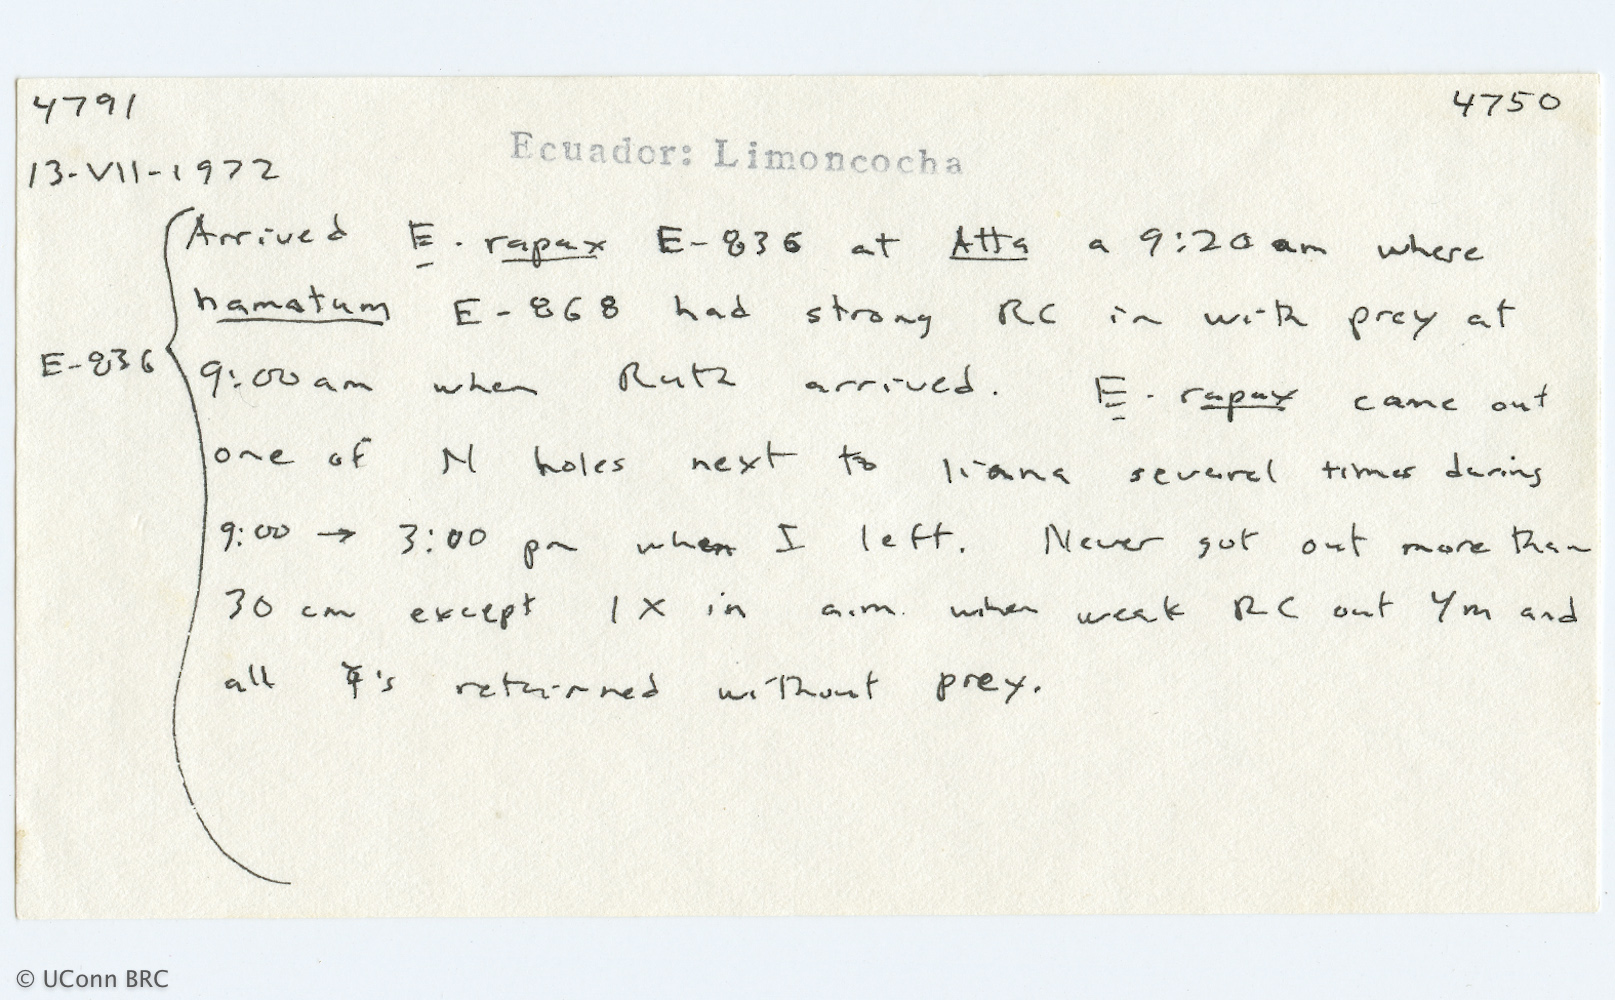 4791 4750
Ecuador: Limoncocha
13-VII-1972
Arrived E. rapax E-836 at Atta a 9:20 am where
hamatum E-868 had strong RC in with prey at
E-836
9:00 am when Ruth arrived. E. rapax came out
one of N holes next to liana several times during
9:00 → 3:00 pm when I left. Never got out more than
30 cm except 1X in a.m. when weak RC out 4m and
all ☿'s returned without prey.
© UConn BRC